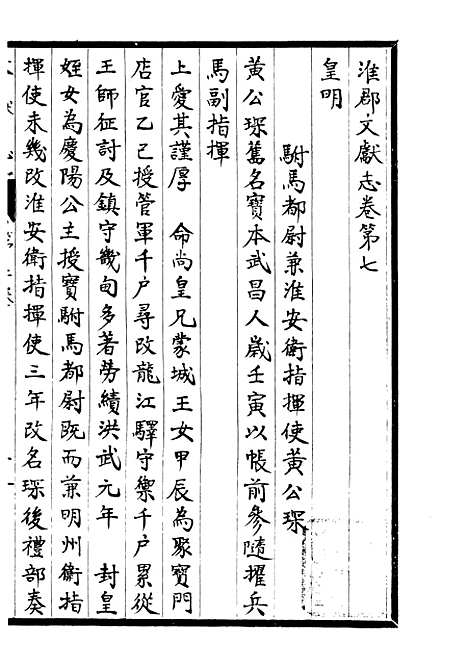 淮郡文獻志卷第七
皇明
駙馬都尉兼淮安衛指揮使黃公琛
黃公琛舊名寶本武昌人歲壬寅以帳前參隨擢兵
馬副指揮
上愛其謹厚 命尚皇兄蒙城王女甲辰為聚寶門
店官乙巳授管軍千户尋改龍江驛守禦千户累從
王師征討及鎮守畿甸多著勞績洪武元年 封皇
姪女為慶陽公主授寶駙馬都尉既而兼明州衛指
揮使未幾改淮安衛指揮使三年改名琛後禮部奏